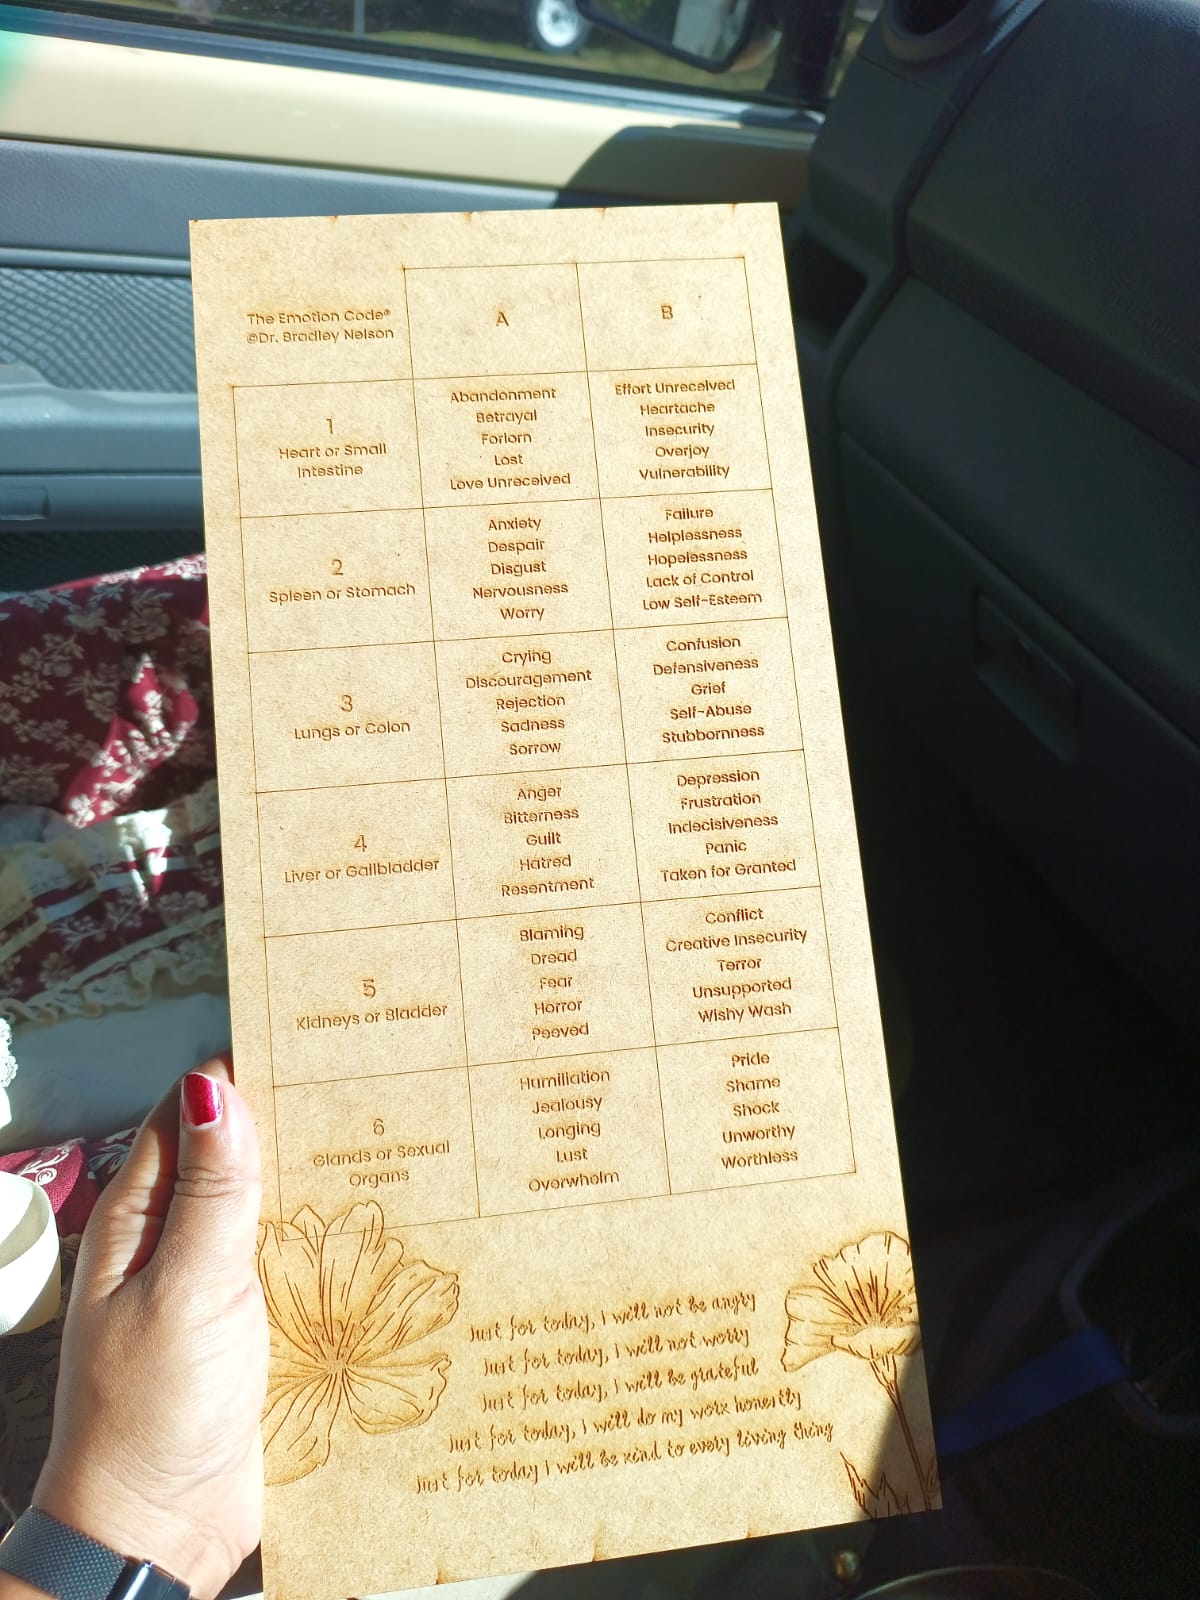 The Emotion Code®
©Dr. Bradley Nelson
A
B
1
Heart or Small
Intestine
Abandonment
Betrayal
Forlorn
Lost
Love Unreceived
Effort Unreceived
Heartache
Insecurity
Overjoy
Vulnerability
2
Spleen or Stomach
Anxiety
Despair
Disgust
Nervousness
Worry
Failure
Helplessness
Hopelessness
Lack of Control
Low Self-Esteem
3
Lungs or Colon
Crying
Discouragement
Rejection
Sadness
Sorrow
Confusion
Defensiveness
Grief
Self-Abuse
Stubbornness
4
Liver or Gallbladder
Anger
Bitterness
Guilt
Hatred
Resentment
Depression
Frustration
Indecisiveness
Panic
Taken for Granted
5
Kidneys or Bladder
Blaming
Dread
Fear
Horror
Peeved
Conflict
Creative Insecurity
Terror
Unsupported
Wishy Wash
6
Glands or Sexual
Organs
Humiliation
Jealousy
Longing
Lust
Overwhelm
Pride
Shame
Shock
Unworthy
Worthless
Just for today, I will not be angry
Just for today, I will not worry
Just for today, I will be grateful
Just for today, I will do my work honestly
Just for today I will be kind to every living thing